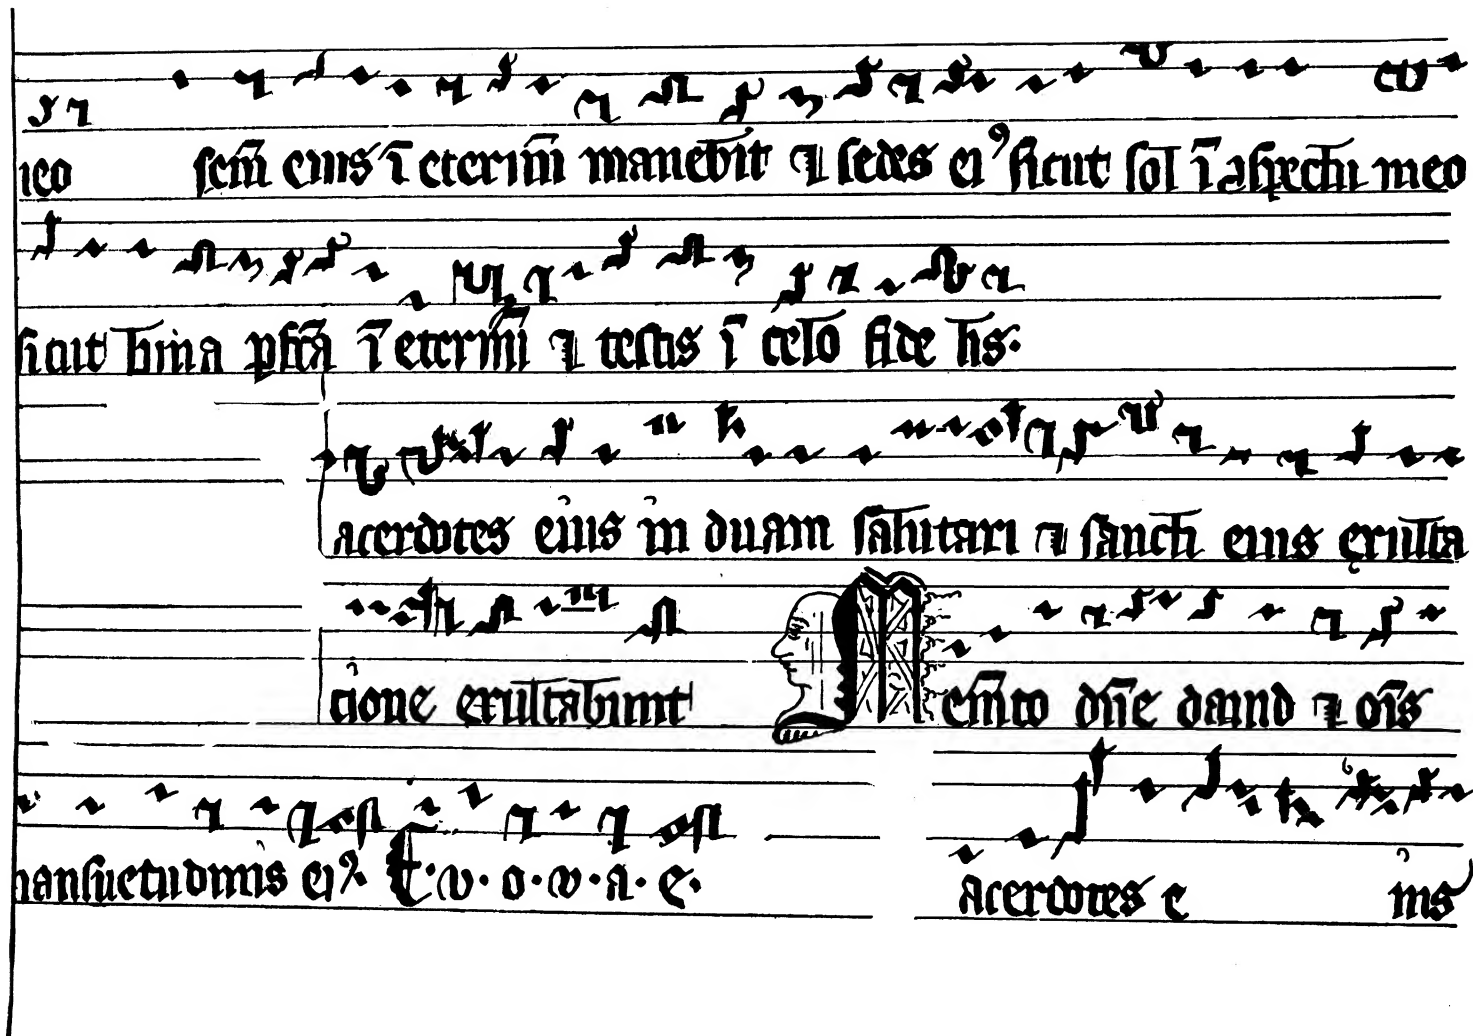 ieo sem̄ eius ī eternū manebit ⁊ sedes ei⁹ sicut sol ī aspectu meo
sicut luna pfcā ī eternū ⁊ testis ī celo fide lis.
acerdotes eius in duam salutari ⁊ sancti eius exulta
cione exultabunt Mem̄to dn̄e dauid ⁊ oīs
mansuetudinis ei⁹. E. v. o. v. a. e. acerdotes e ius